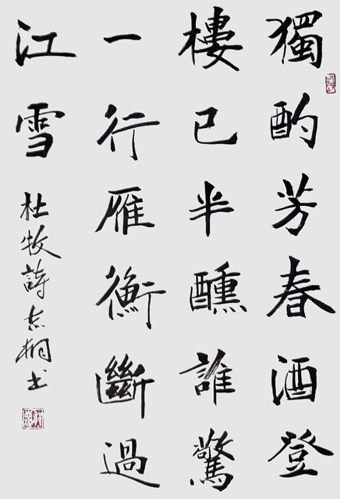 獨酌芳春酒登
樓已半醺誰驚
一行雁衡斷過
江雪
杜牧詩志桐书